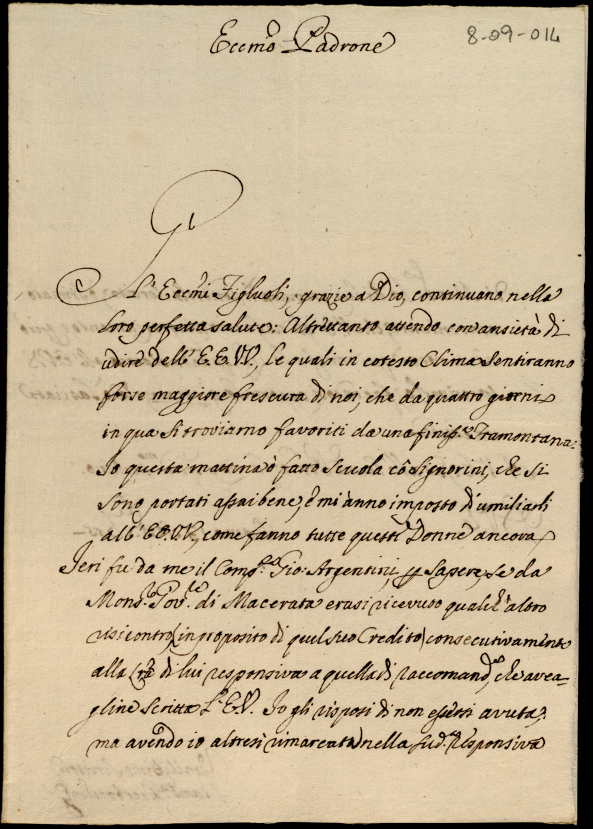 Eccmo Padrone
8-09-014
Gl'
Eccmi Figluoli, grazie a Dio, continuano nella
loro perfetta salute: Altrettanto attendo con ansietà di
udire dell' E.E.V.V., le quali in cotesto Clima Sentiranno
forse maggiore frescura di noi, che da quattro giorni
in qua Si troviamo favoriti da una finissa Tramontana.
Io questa mattina ò fatto Scuola cõ Signorini, che si
sono portati assai bene, e mi ànno imposto d'umiliarli
all' E.E.V.V., come fanno tutte queste Donne ancora.
Jeri fu da me il Gio: Argentini, Sapere, se da
Monsr Govre di Macerata erasi ricevuto qualch' altro
riscontro (in proposito di quel suo Credito) consecutivamente
alla di lui responsiva a quella di raccomandne, che avea-
gline Scritta l'E.V. Io gli risposi di non essersi avuta;
ma avendo io altresì rimarcato nella sudda responsiva